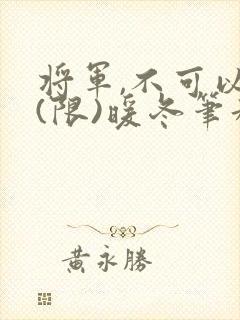 將軍,不可以
(限)暖冬筆
黃永勝